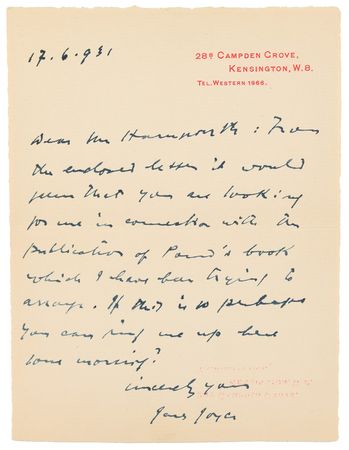 17.6.931
28B CAMPDEN GROVE,
KENSINGTON, W.8.
TEL. WESTERN 1966.
Dear Mr Harmsworth: From
the enclosed letter it would
seem that you are looking
for me in connection with the
publication of Pound's book
which I have been trying to
arrange. If this is so perhaps
you can ring me up here
some morning?
sincerely yours
James Joyce